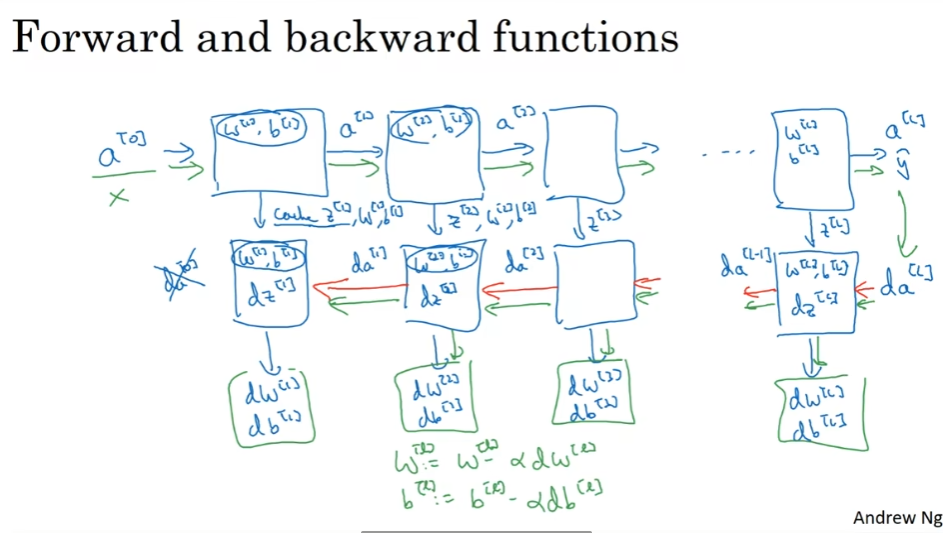 Forward and backward functions
a^[0] w^[1], b^[1] a^[1] w^[2], b^[2] a^[2] .... w^[L] a^[L]
x b^[L] ŷ
cache z^[1], w^[1], b^[1] z^[2], w^[2], b^[2] z^[3] z^[L]
da^[0] w^[1], b^[1] da^[1] w^[2], b^[2] da^[2] da^[L-1] w^[L], b^[L] da^[L]
dz^[1] dz^[2] dz^[L]
dw^[1] dw^[2] dw^[3] dw^[L]
db^[1] db^[2] db^[3] db^[L]
w^[l] := w^[l] - αdw^[l]
b^[l] := b^[l] - αdb^[l]
Andrew Ng